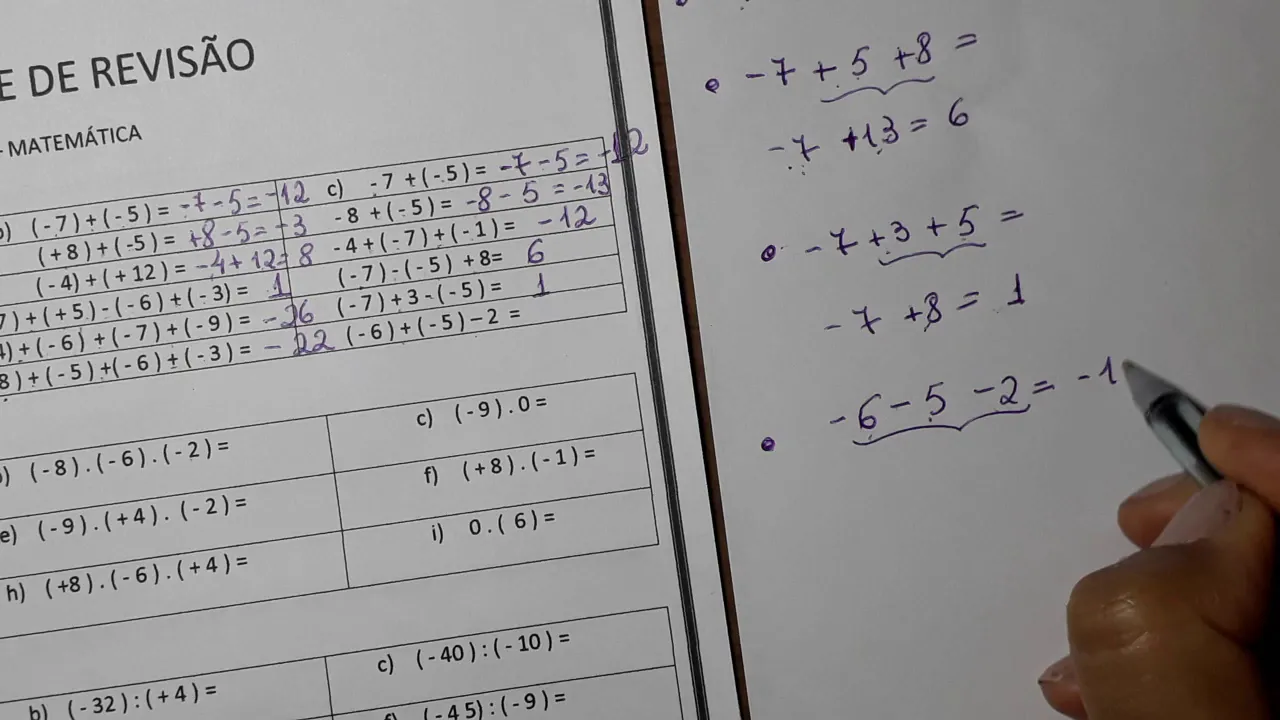 E DE REVISÃO
- MATEMÁTICA
(-7)+(-5)= -7-5=-12
c) -7+(-5)= -7-5=-12
(+8)+(-5)= +8-5=-3
-8+(-5)= -8-5=-13
(-4)+(+12)= -4+12=8
-4+(-7)+(-1)= -12
7)+(+5)-(-6)+(-3)= 1
(-7)-(-5)+8= 6
4)+(-6)+(-7)+(-9)= -26
(-7)+3-(-5)= 1
8)+(-5)+(-6)+(-3)= -22
(-6)+(-5)-2=
) (-8).(-6).(-2)=
c) (-9).0=
e) (-9).(+4).(-2)=
f) (+8).(-1)=
h) (+8).(-6).(+4)=
i) 0.(6)=
b) (-32):(+4)=
c) (-40):(-10)=
(-45):(-9)=
• -7+5+8=
-7+13=6
• -7+3+5=
-7+8=1
• -6-5-2=-1